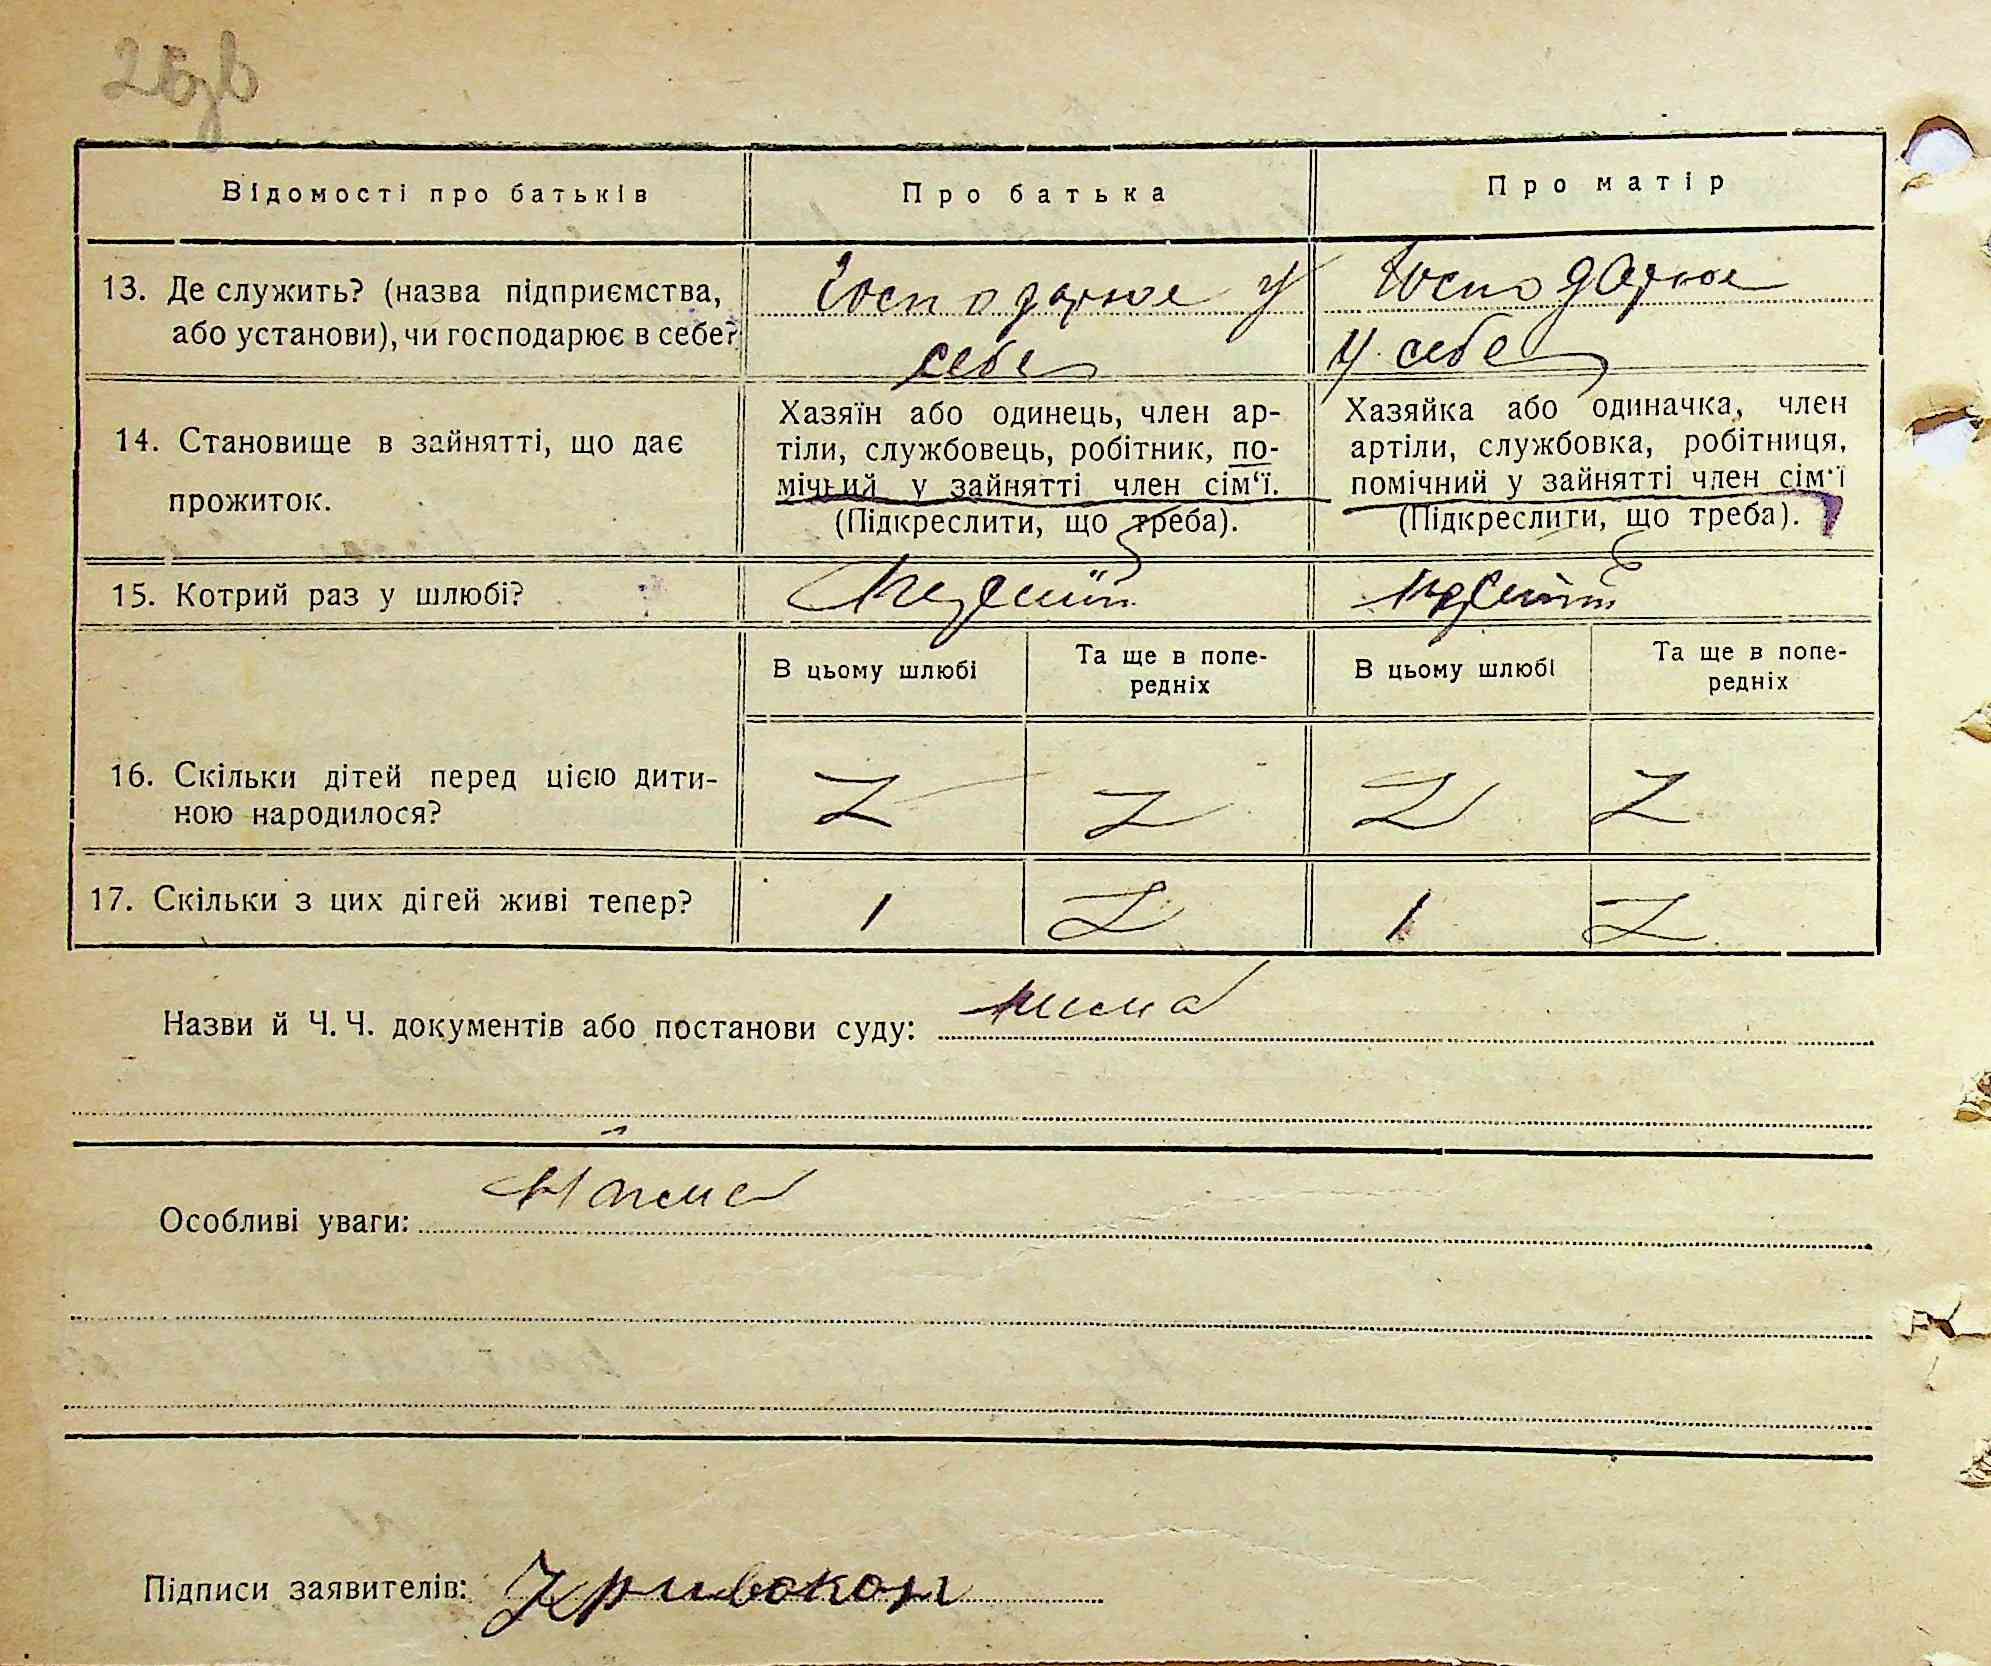 26зв
Відомості про батьків
Про батька
Про матір
13. Де служить? (назва підприємства,
або установи), чи господарює в себе?
Господарює у
себе
Господарює
у себе
14. Становище в зайнятті, що дає
прожиток.
Хазяїн або одинець, член ар-
тіли, службовець, робітник, по-
мічний у зайнятті член сім‘ї.
(Підкреслити, що треба).
Хазяйка або одиначка, член
артіли, службовка, робітниця,
помічний у зайнятті член сім‘ї
(Підкреслити, що треба).
15. Котрий раз у шлюбі?
Перший
перший
В цьому шлюбі
Та ще в попе-
редніх
В цьому шлюбі
Та ще в попе-
редніх
16. Скільки дітей перед цією дити-
ною народилося?
2
2
2
2
17. Скільки з цих дітей живі тепер?
1
2
1
2
Назви й Ч. Ч. документів або постанови суду: нима
Особливі уваги: Нима
Підписи заявителів: Кривокон